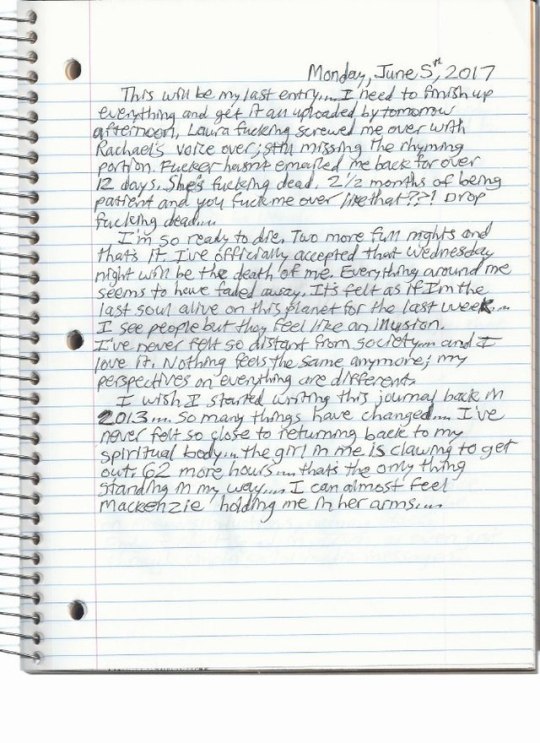 Monday, June 5th, 2017
This will be my last entry.... I need to finish up
everything and get it all uploaded by tomorrow
afternoon. Laura fucking screwed me over with
Rachael's voice over; still missing the rhyming
portion. Fucker hasn't emailed me back for over
12 days. She's fucking dead. 2 1/2 months of being
patient and you fuck me over like that??! Drop
fucking dead....
I'm so ready to die. Two more full nights and
thats it. I've officially accepted that Wednesday
night will be the death of me. Everything around me
seems to have faded away. It's felt as if I'm the
last soul alive on this planet for the last week....
I see people but they feel like an illusion.
I've never felt so distant from society.... and I
love it. Nothing feels the same anymore; my
perspectives on everything are different.
I wish I started writing this journal back in
2013.... So many things have changed.... I've
never felt so close to returning back to my
spiritual body.... the girl in me is clawing to get
out. 62 more hours.... thats the only thing
standing in my way.... I can almost feel
Mackenzie holding me in her arms....